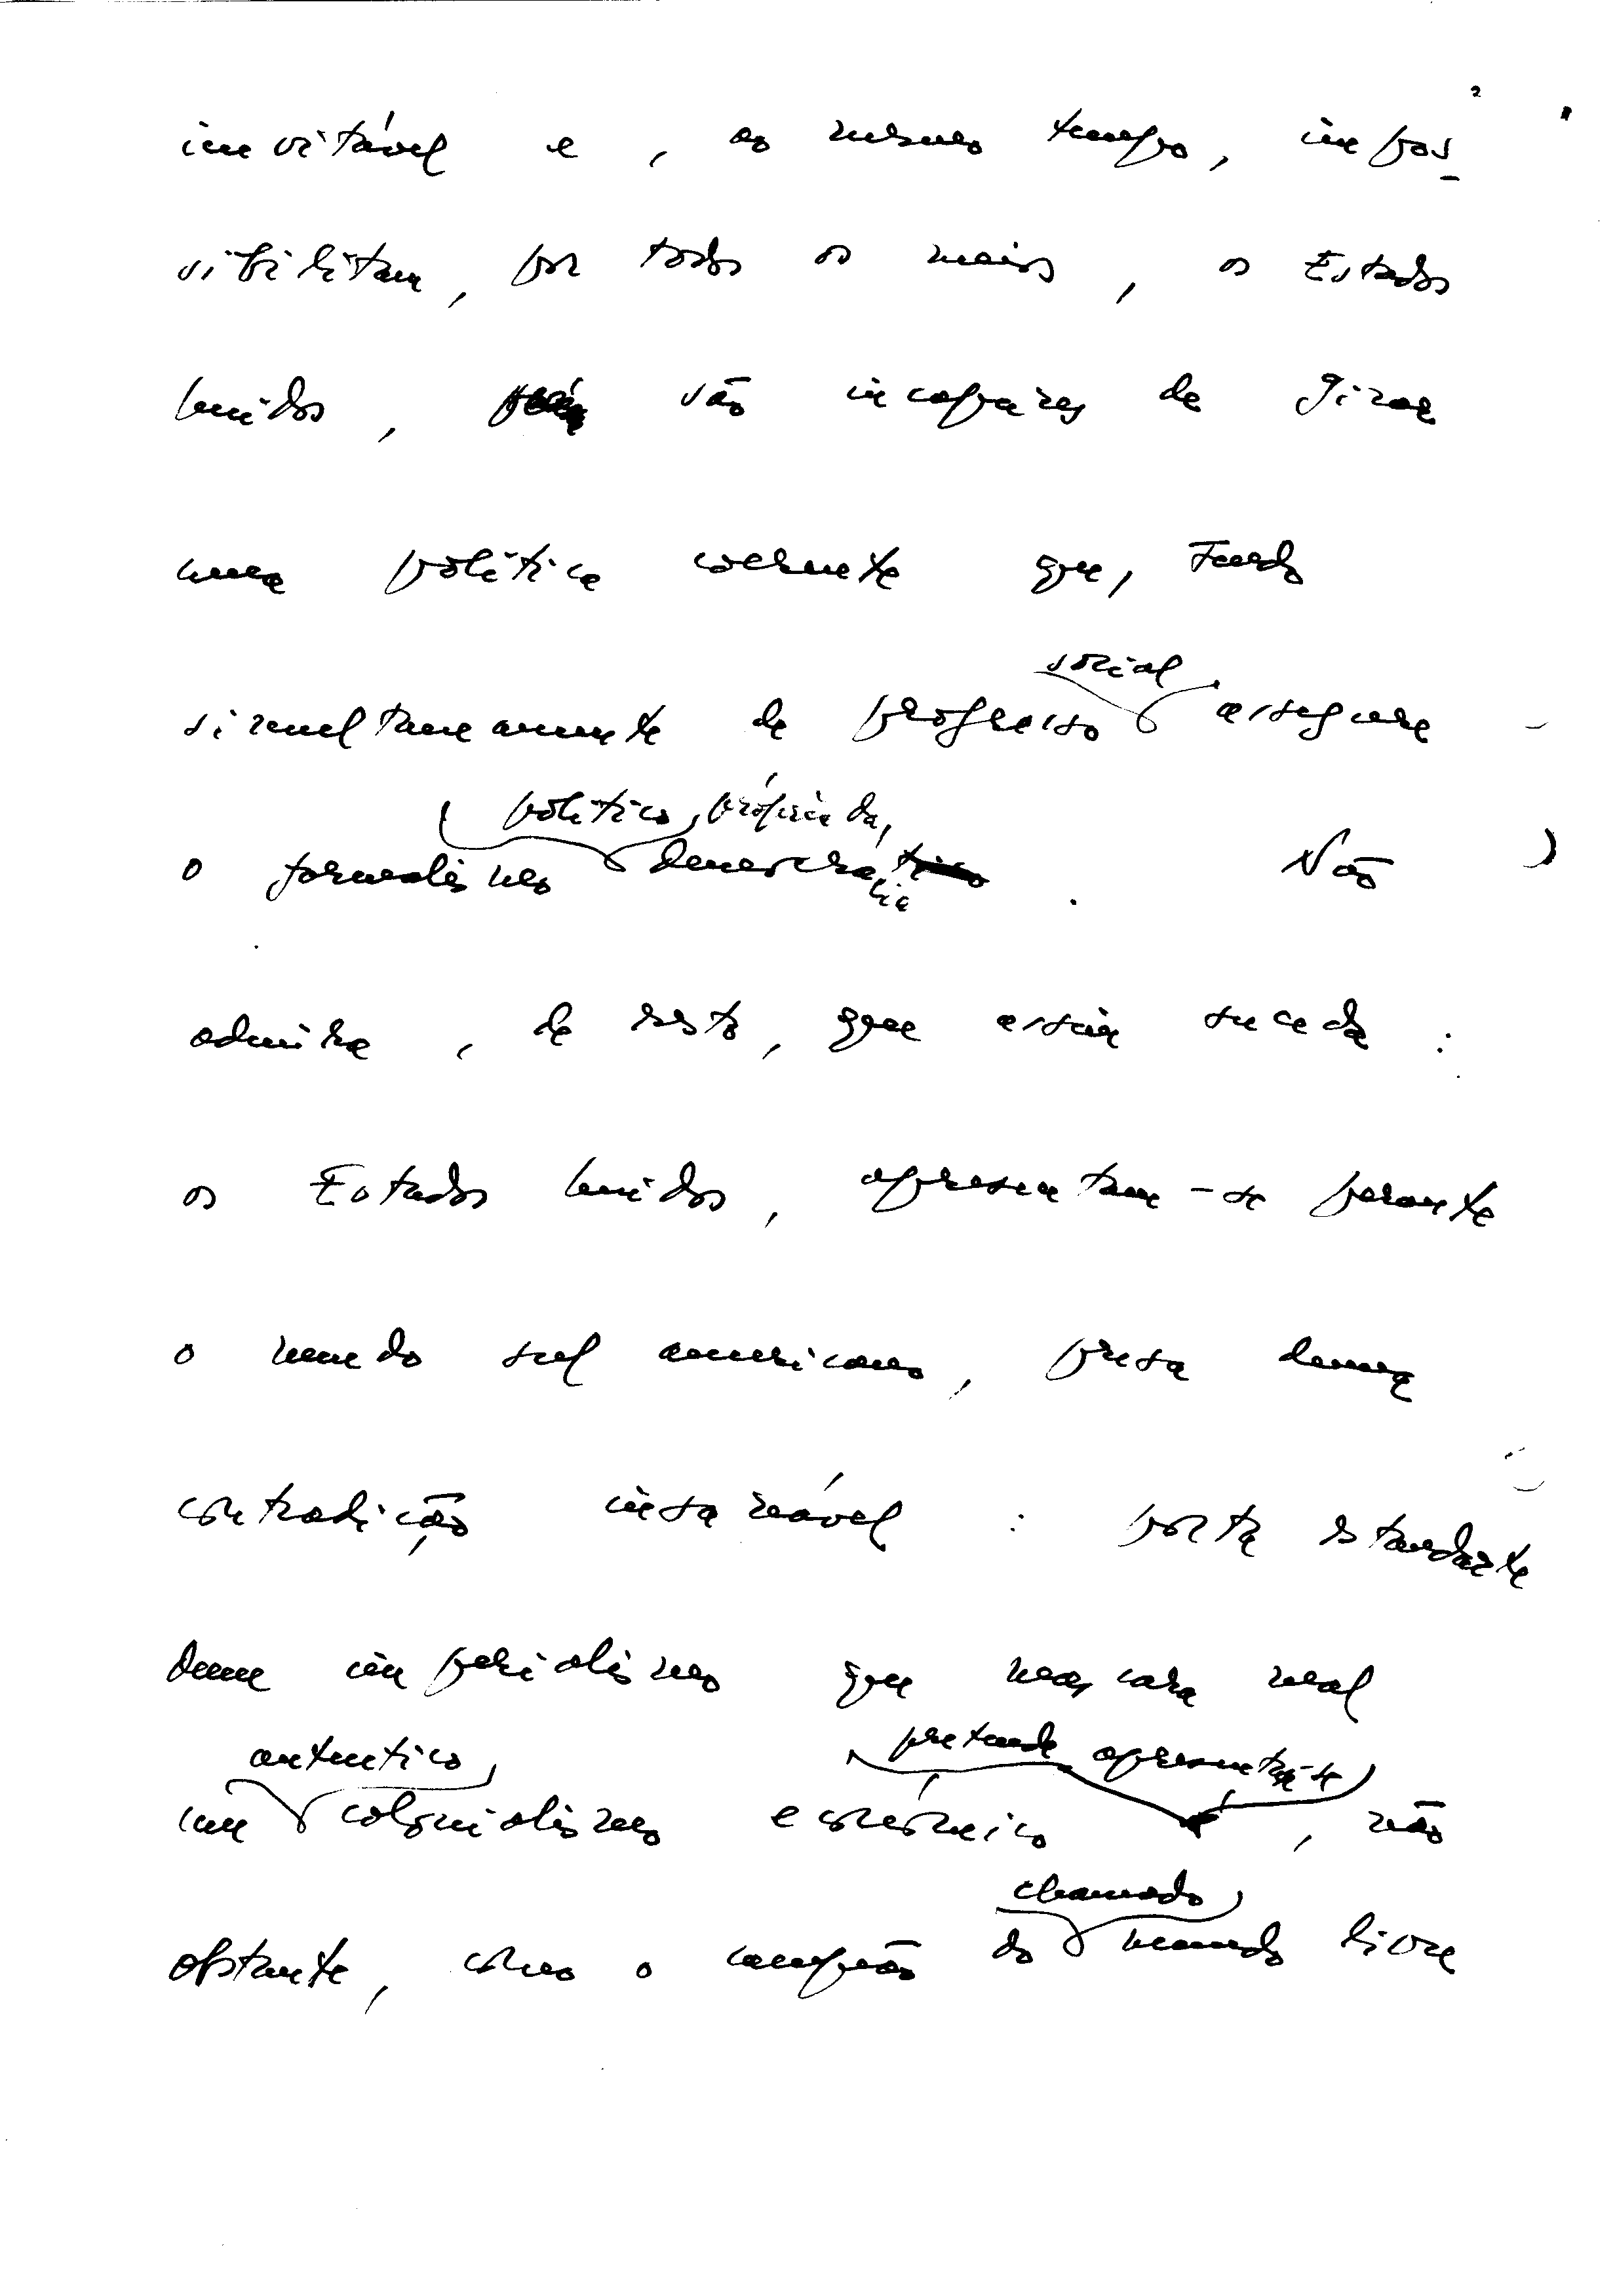 2
inevitável e, ao mesmo tempo, impos-
sibilitam, por todos os meios, os Estados
Unidos, são incapazes de gizar
uma política coerente que, sendo
social
simultaneamente de progresso assegure
político, própria da,
o formalismo democrácia. Não
admira, de resto, que assim suceda:
os Estados Unidos, apresentam-se perante
o mundo sul americano, presa duma
contradição insanável: porta estandarte
dum imperialismo que mascara mal
autentico pretende apresentar-se
um colonialismo económico, não
chamado
obstante, como o campeão do mundo livre